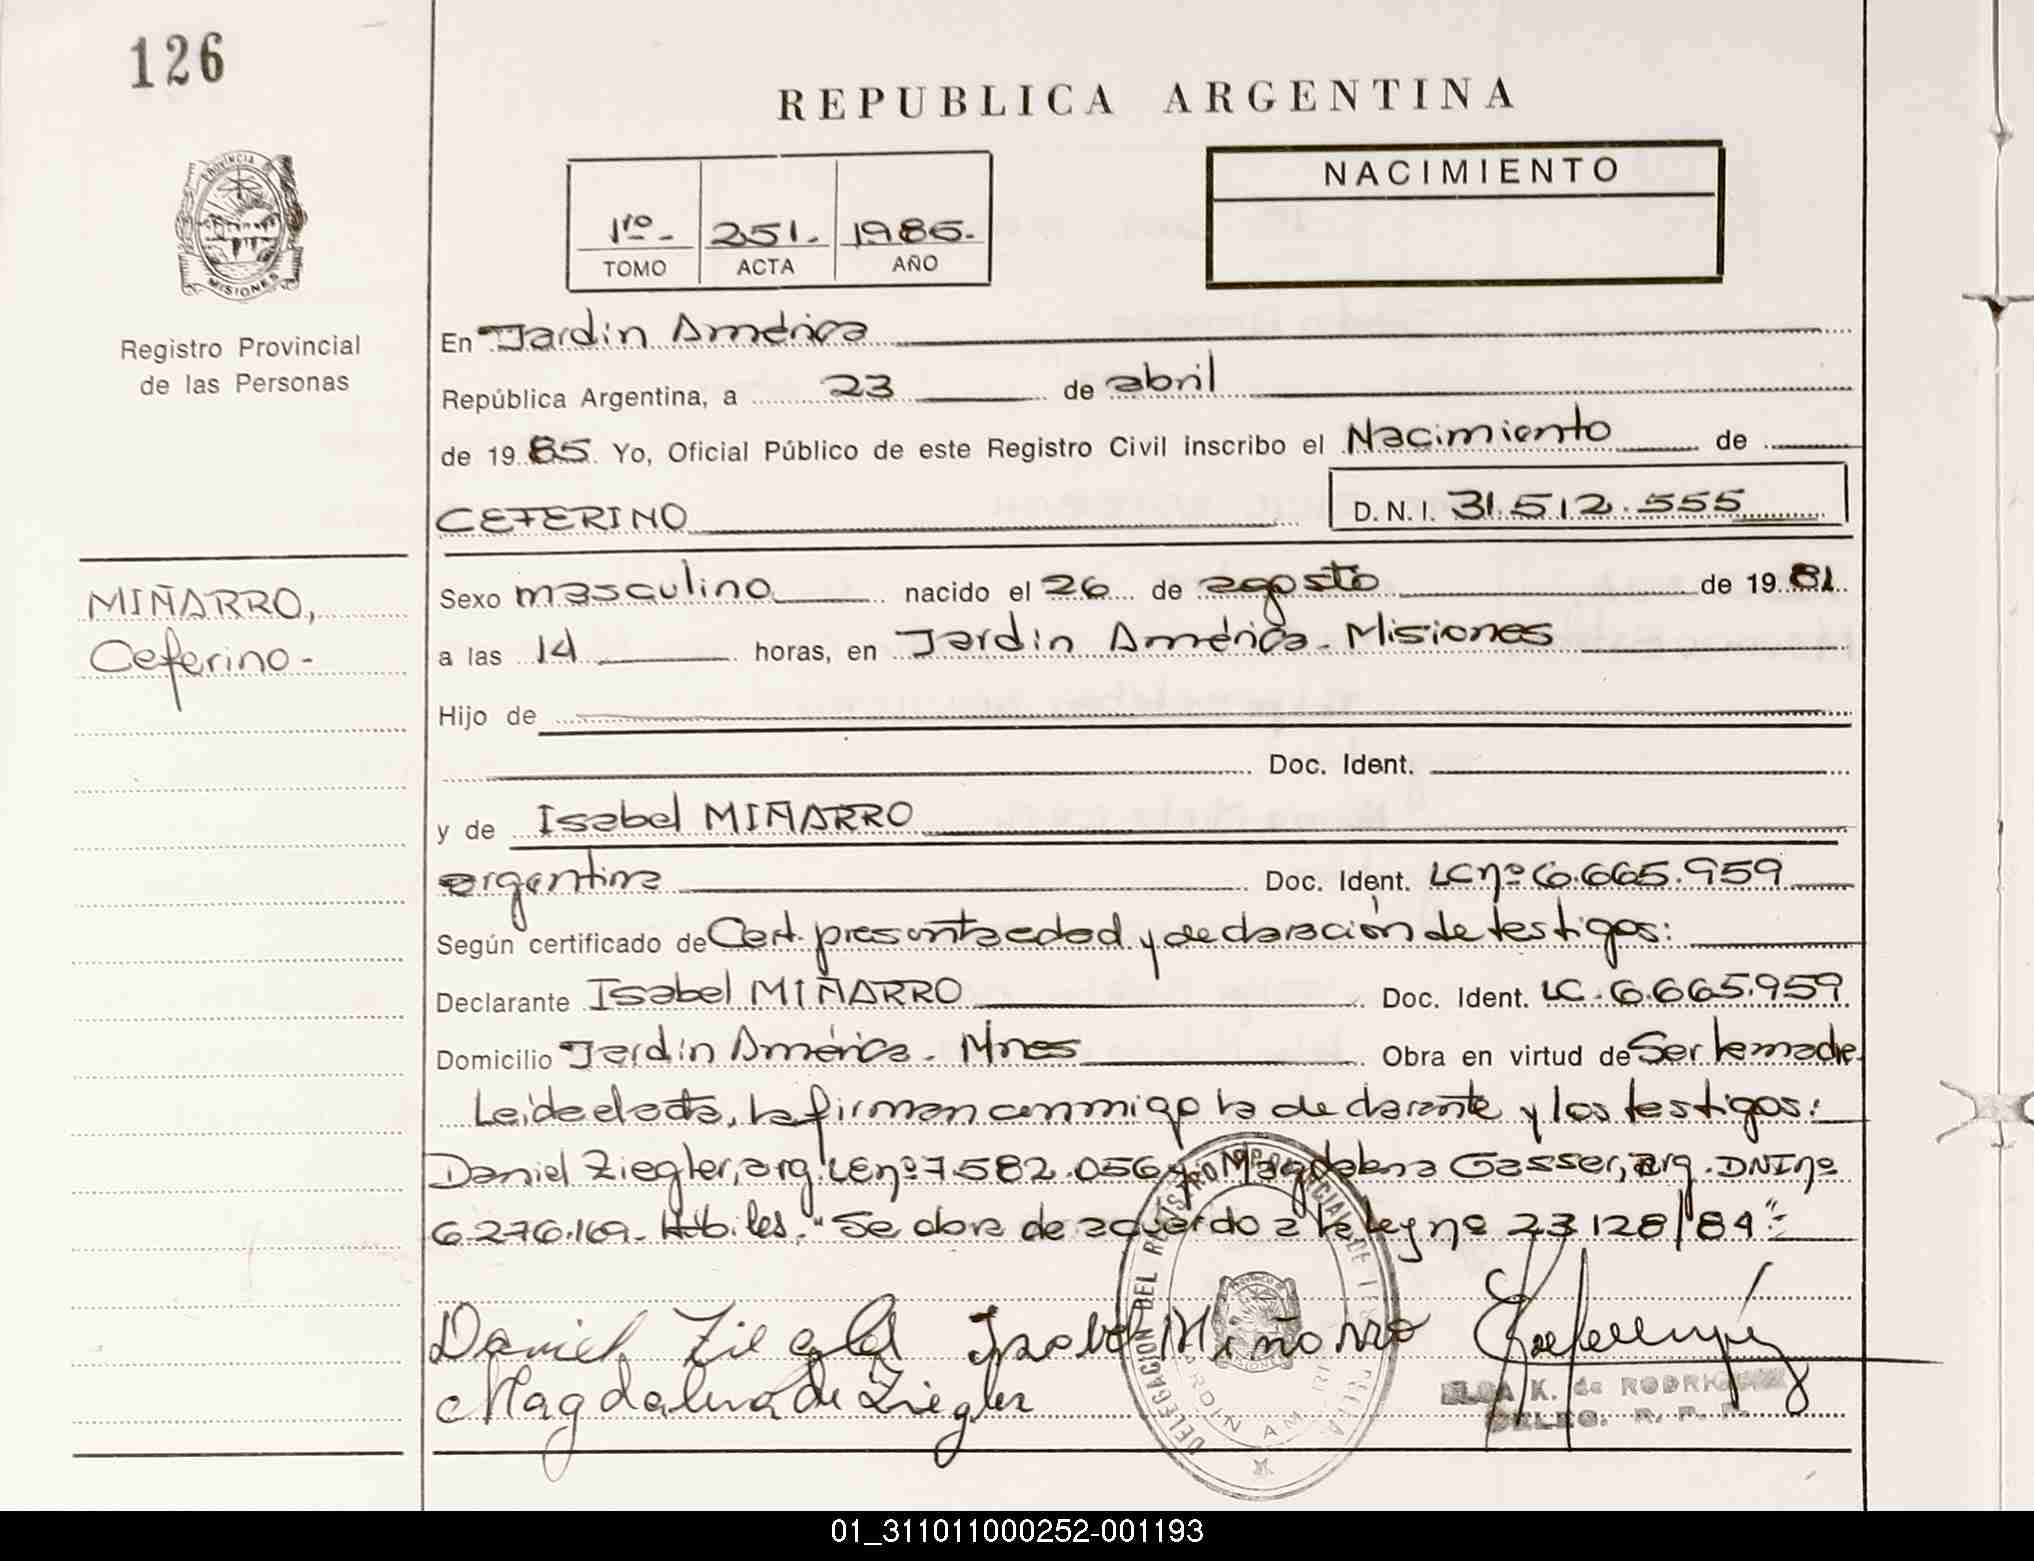 126
REPUBLICA ARGENTINA
NACIMIENTO
1ro.- 251.- 1985.-
TOMO ACTA AÑO
PROVINCIA
MISIONES
Registro Provincial
de las Personas
En Jardín América
República Argentina, a 23 de abril
de 1985 Yo, Oficial Público de este Registro Civil inscribo el Nacimiento de
CEFERINO D.N.I. 31.512.555
MIÑARRO,
Ceferino-
Sexo masculino nacido el 26 de agosto de 1981
a las 14 horas, en Jardín América. Misiones
Hijo de
Doc. Ident.
y de Isabel MIÑARRO
argentina Doc. Ident. LC nº 6.665.959
Según certificado de Cert. presunta edad y declaración de testigos:
Declarante Isabel MIÑARRO Doc. Ident. LC. 6.665.959
Domicilio Jardín América. Mnes Obra en virtud de Ser la madre.
Leída el acta, la firman conmigo la declarante y los testigos:
Daniel Ziegler, arg. LE nº 7.582.056 y Magdalena Gasser, arg. DNI nº
6.276.169. Hábiles. "Se obra de acuerdo a la ley nº 23128/84"-
Daniel Ziegler Isabel Miñarro
Magdalena de Ziegler
ELGA K. de RODRIGUEZ
DELEG. R. P. P.
DELEGACION DEL REGISTRO PROVINCIAL DE
JARDIN AMERICA
01_311011000252-001193